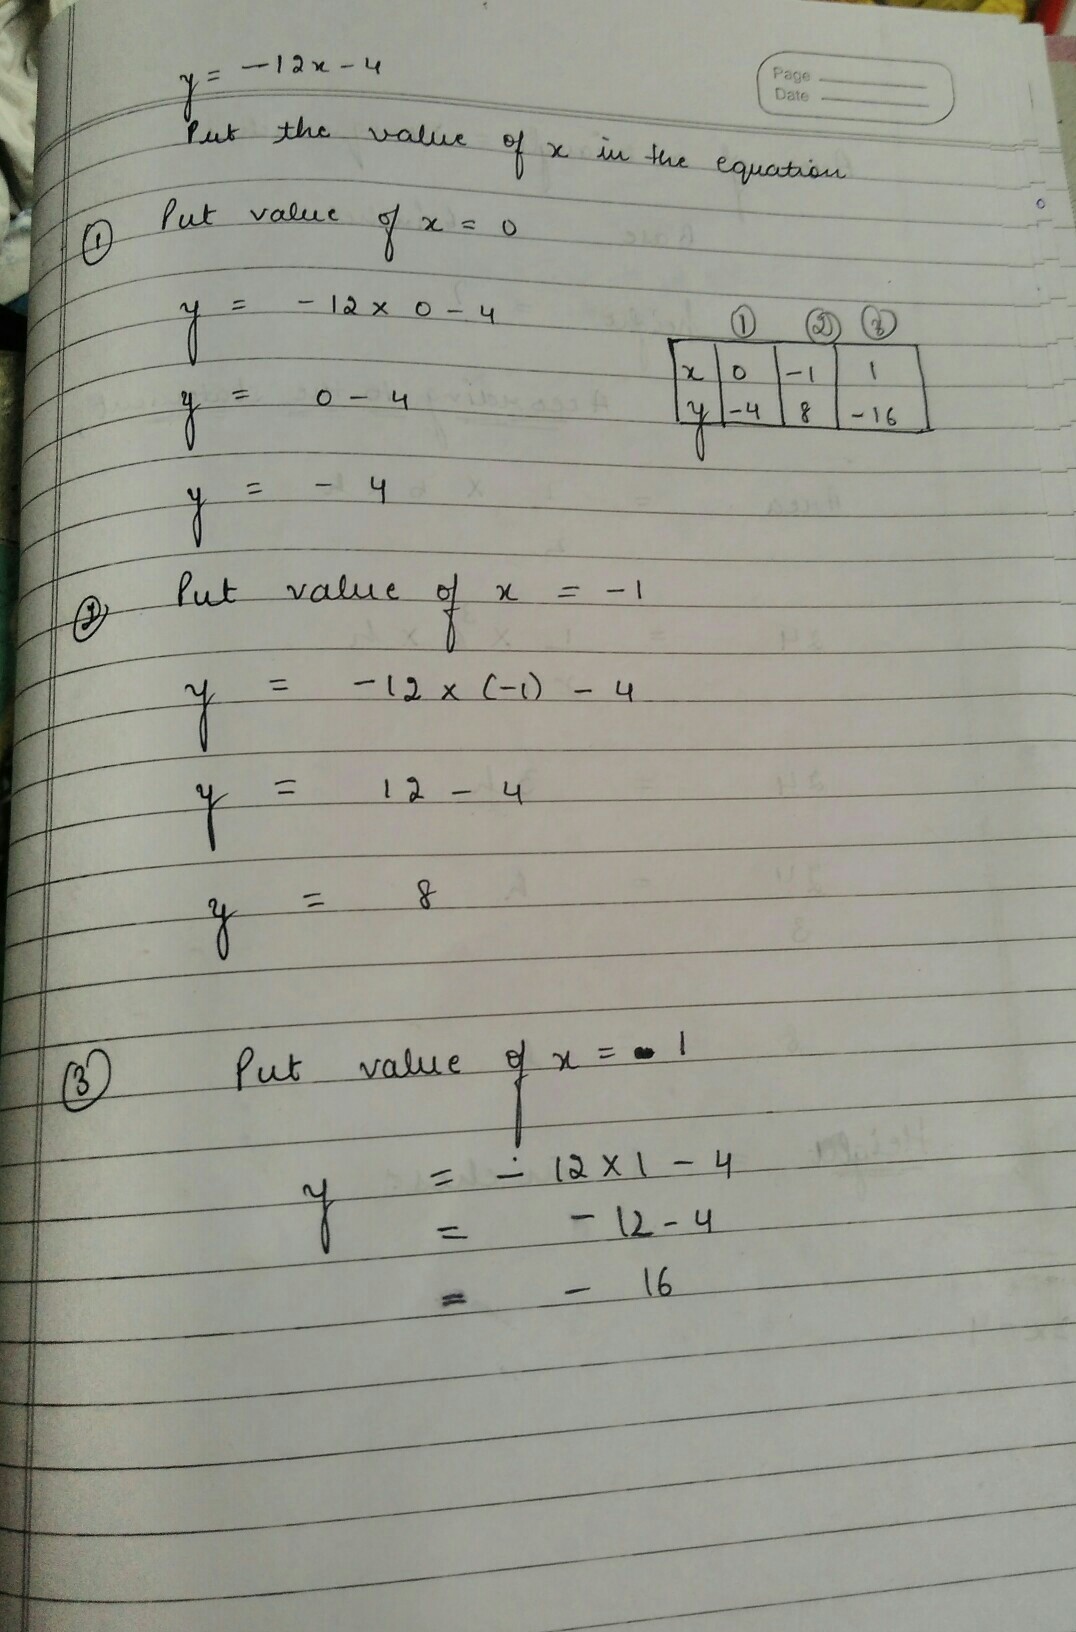 y = -12x - 4
Page
Date
Put the value of x in the equation
① Put value of x = 0
y = -12 x 0 - 4
y = 0 - 4
y = - 4
① ② ③
x 0 -1 1
y -4 8 -16
② Put value of x = -1
y = -12 x (-1) - 4
y = 12 - 4
y = 8
③ Put value of x = 1
y = - 12 x 1 - 4
= - 12 - 4
= - 16